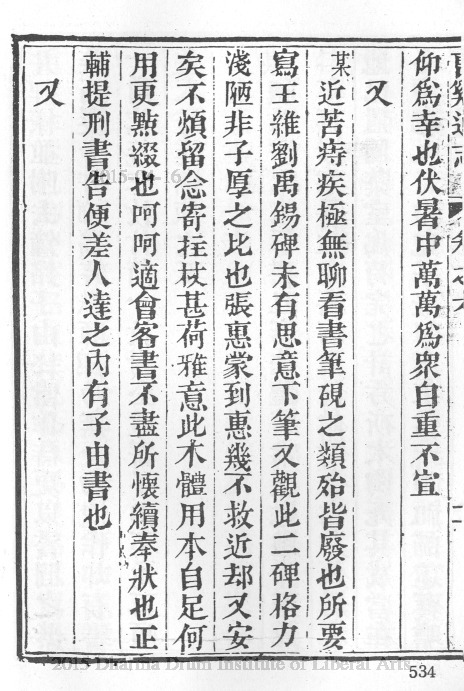 仰爲幸也伏暑中萬萬爲衆自重不宣
又
某近苦痔疾極無聊看書筆硯之類殆皆廢也所要
寫王維劉禹錫碑未有思意下筆又觀此二碑格力
淺陋非子厚之比也張惠蒙到惠幾不救近却又安
矣不煩留念寄拄杖甚荷雅意此木體用本自足何
用更點綴也呵呵適會客書不盡所懷續奉狀也正
輔提刑書告便差人達之內有子由書也
又
2015-04-16
2015 Dharma Drum Institute of Liberal Arts
534